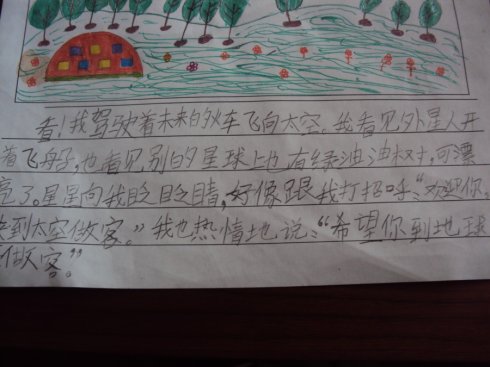 看！我驾驶着未来的火车飞向太空。我看见外星人开
着飞船，也看见别的星球上也有绿油油树，可漂
亮了。星星向我眨眨睛，好像跟我打招呼：“欢迎你。
来到太空做客。”我也热情地说：“希望你到地球
做客。”